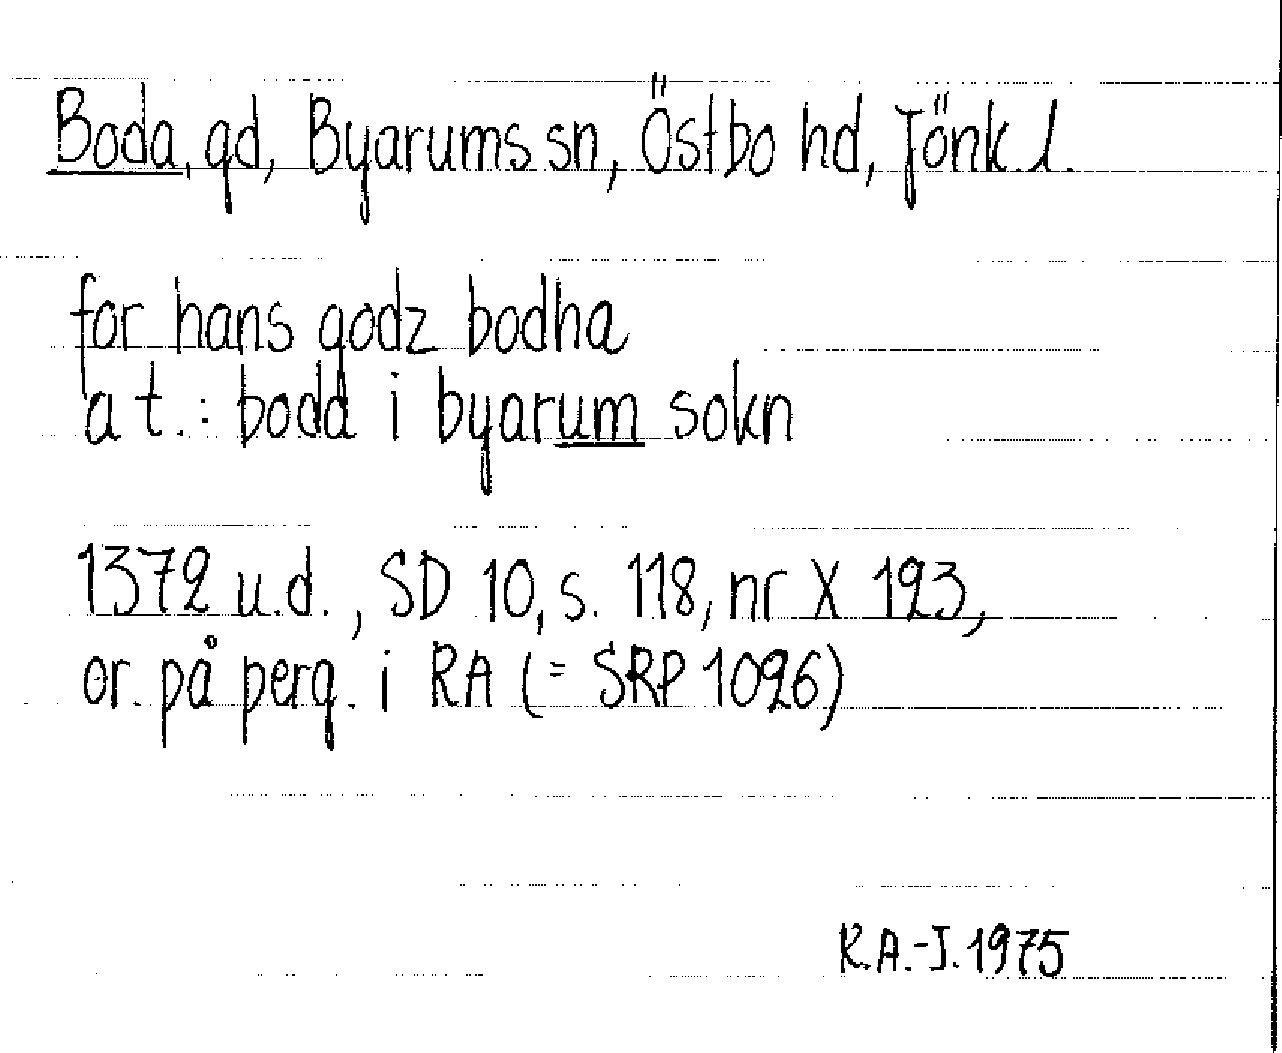 Boda, gd, Byarums sn, Östbo hd, Jönk. l.
for hans godz bodha
a t.: bodd i byarum sokn
1372 u.d., SD 10, s. 118, nr X 123,
or. på perg. i RA (= SRP 1026)
R.A.-J. 1975